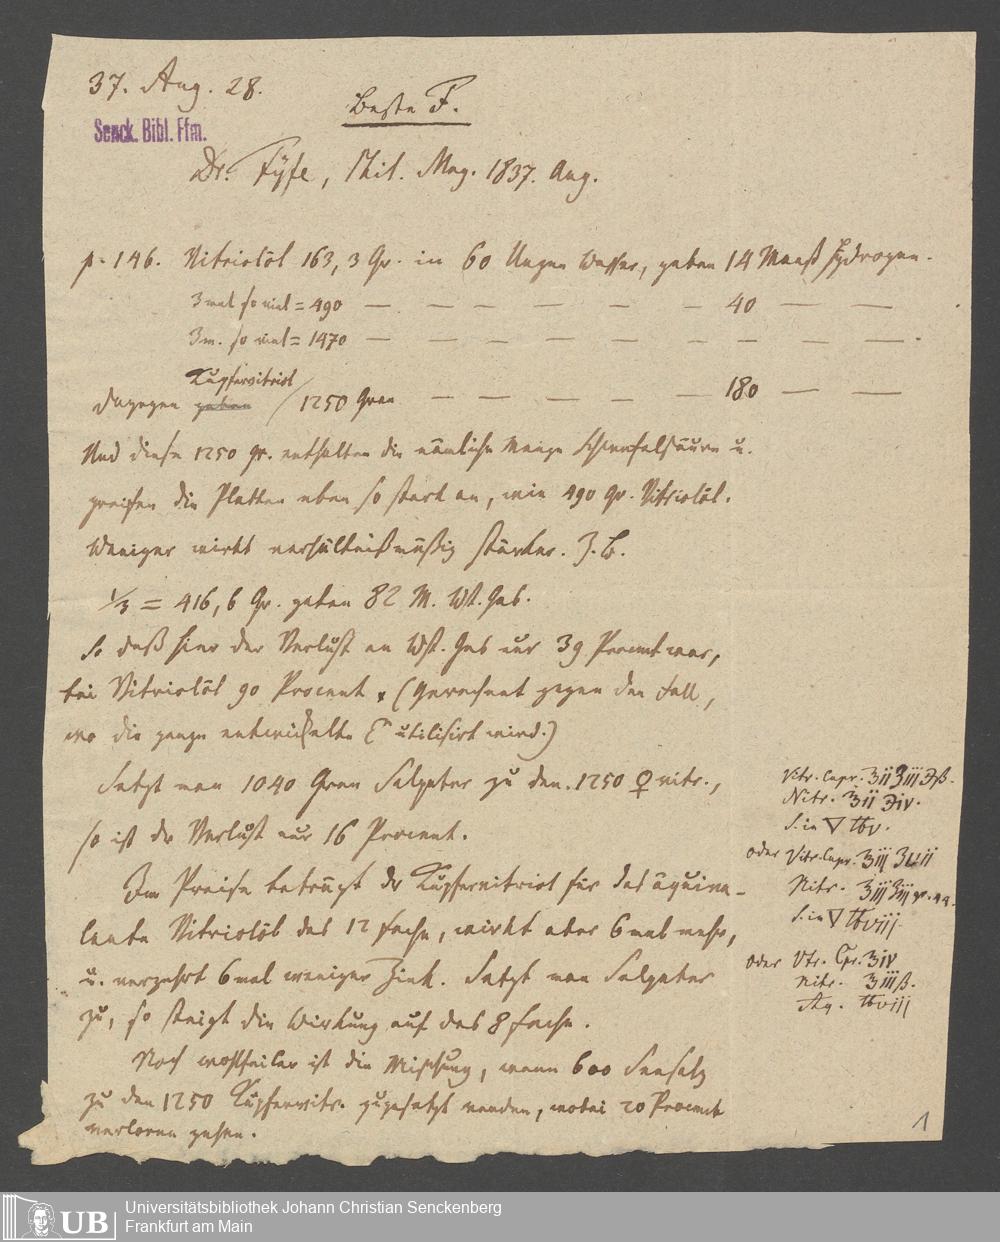 37. Aug. 28.
Beste F.
Senck. Bibl. Ffm.
Dr. Fyfe, Phil. Mag. 1837. Aug.
p. 146. Vitriolöl 163,3 Gr. in 60 Unzen Wasser, gaben 14 Maaß Hydrogen.
3 mal so viel = 490 — — — — — — 40 — —
3 m. so viel = 1470 — — — — — — — — —
Kupfervitriol
dagegen gaben / 1250 Gran — — — — — 180 — —
Und diese 1250 gr. enthalten die nämliche Menge Schwefelsäure u.
greifen die Platten eben so stark an, wie 490 gr. Vitriolöl.
Weniger wirkt verhältnißmäßig stärker. Z. B.
1/3 = 416,6 Gr. gaben 82 M. Wst. Gas.
So daß hier der Verlust an Wst. Gas nur 39 Procent war,
bei Vitriolöl 90 Procent (gerechnet gegen den Fall,
wo die ganze entwickelte E utilisirt wird.)
Setzt man 1040 Gran Salpeter zu den 1250 ♀ vitr.,
so ist der Verlust nur 16 Procent.
Im Preise beträgt der Kupfervitriol für das äquiva-
lente Vitriolöl das 12 fache, wirkt aber 6 mal mehr,
u. verzehrt 6 mal weniger Zink. Setzt man Salpeter
zu, so steigt die Wirkung auf das 8 fache.
Noch wohlfeiler ist die Mischung, wenn 600 Seesalz
zu den 1250 Kupfervitr. zugesetzt werden, wobei 20 Procent
verloren gehen.
Vitr. Cupr. ℥ii ʒiii ℈ß.
Nitr. ℥ii ℈iv.
S. in ▽ ℔v.
oder Vitr. Cupr. ℥iii
Nitr. ℥iii ʒiii gr.
S. in ▽ ℔viij.
oder Vtr. Cpr. ℥iv
Nitr. ℥iiiß.
Aq. ℔viii
1
UB
Universitätsbibliothek Johann Christian Senckenberg
Frankfurt am Main